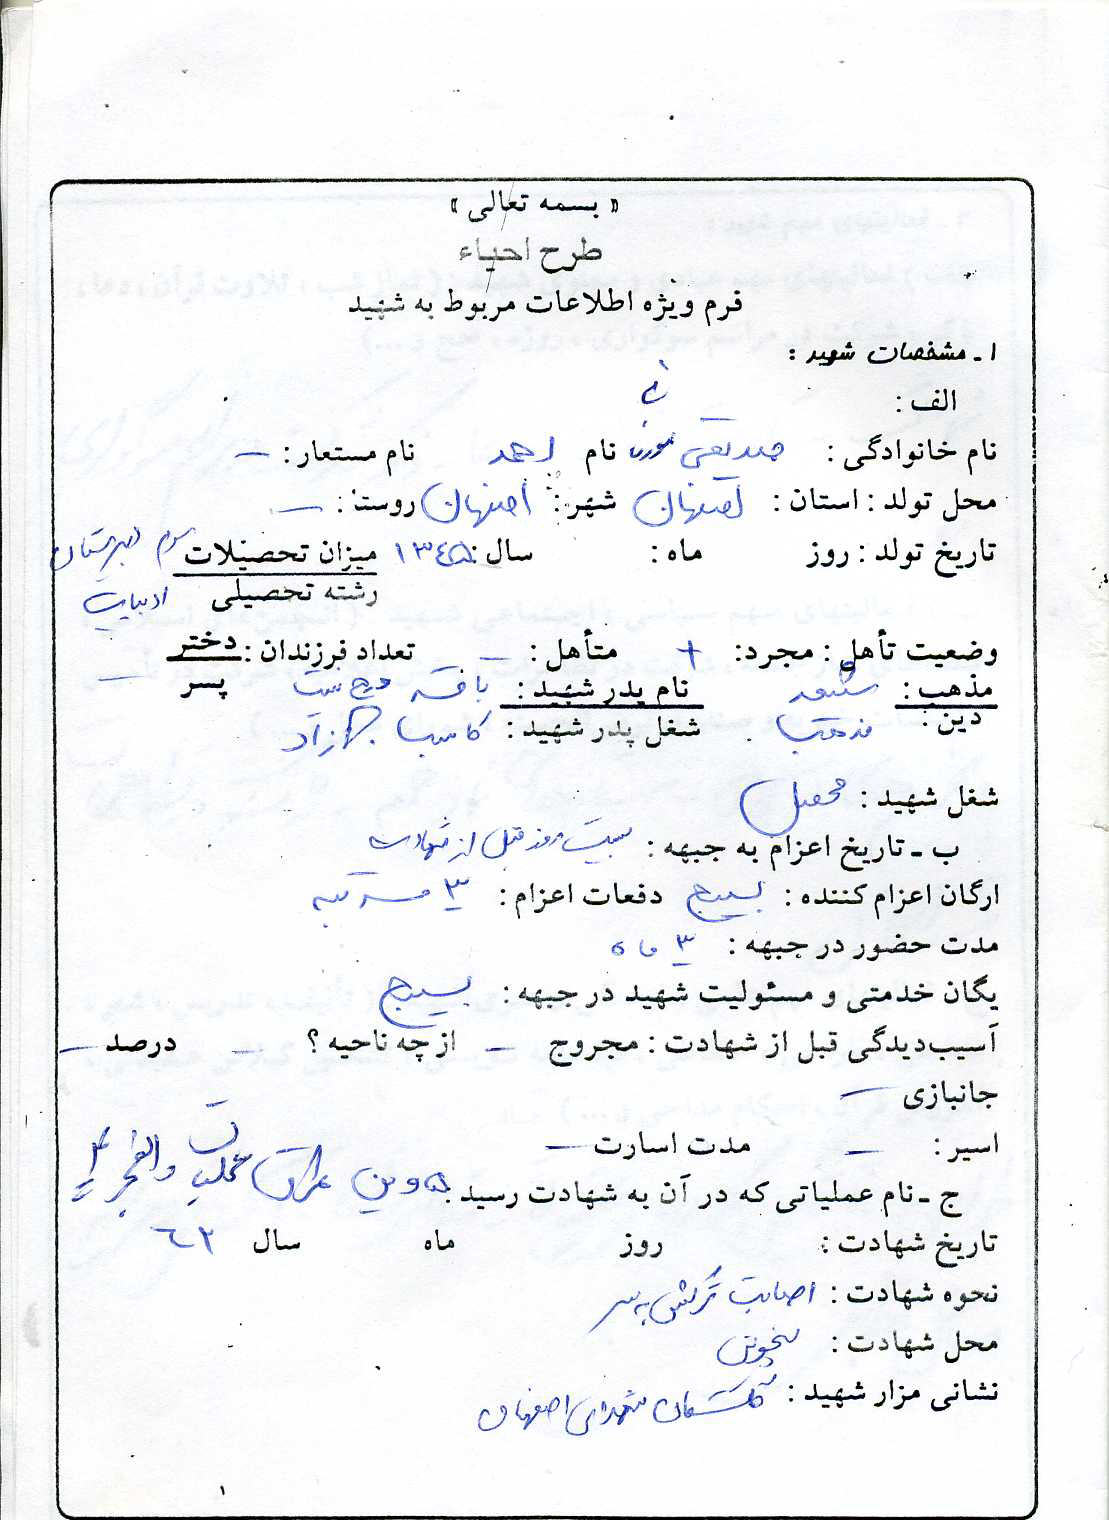 « بسمه تعالی »
طرح احیاء
فرم ویژه اطلاعات مربوط به شهید
۱ـ مشخصات شهید :
الف :
نام خانوادگی : صدیقی نام احمد نام مستعار : —
محل تولد : استان : اصفهان شهر : اصفهان روستا : —
تاریخ تولد : روز ماه : سال : ۱۳۴۵ میزان تحصیلات سوم دبیرستان
رشته تحصیلی ادبیات
وضعیت تأهل : مجرد : + متأهل : — تعداد فرزندان : دختر
مذهب : شیعه نام پدر شهید : پسر —
دین : شغل پدر شهید : کاسب آزاد
شغل شهید : محصل
ب ـ تاریخ اعزام به جبهه : بیست روز قبل از شهادت
ارگان اعزام کننده : بسیج دفعات اعزام : ۳ مرتبه
مدت حضور در جبهه : ۳ ماه
یگان خدمتی و مسئولیت شهید در جبهه : بسیج
آسیب‌دیدگی قبل از شهادت : مجروج — از چه ناحیه ؟ — درصد —
جانبازی —
اسیر : — مدت اسارت —
ج ـ نام عملیاتی که در آن به شهادت رسید : عملیات والفجر ۴
تاریخ شهادت : روز ماه سال ۶۲
نحوه شهادت : اصابت ترکش به سر
محل شهادت : پنجوین
نشانی مزار شهید : گلستان شهدای اصفهان
۱